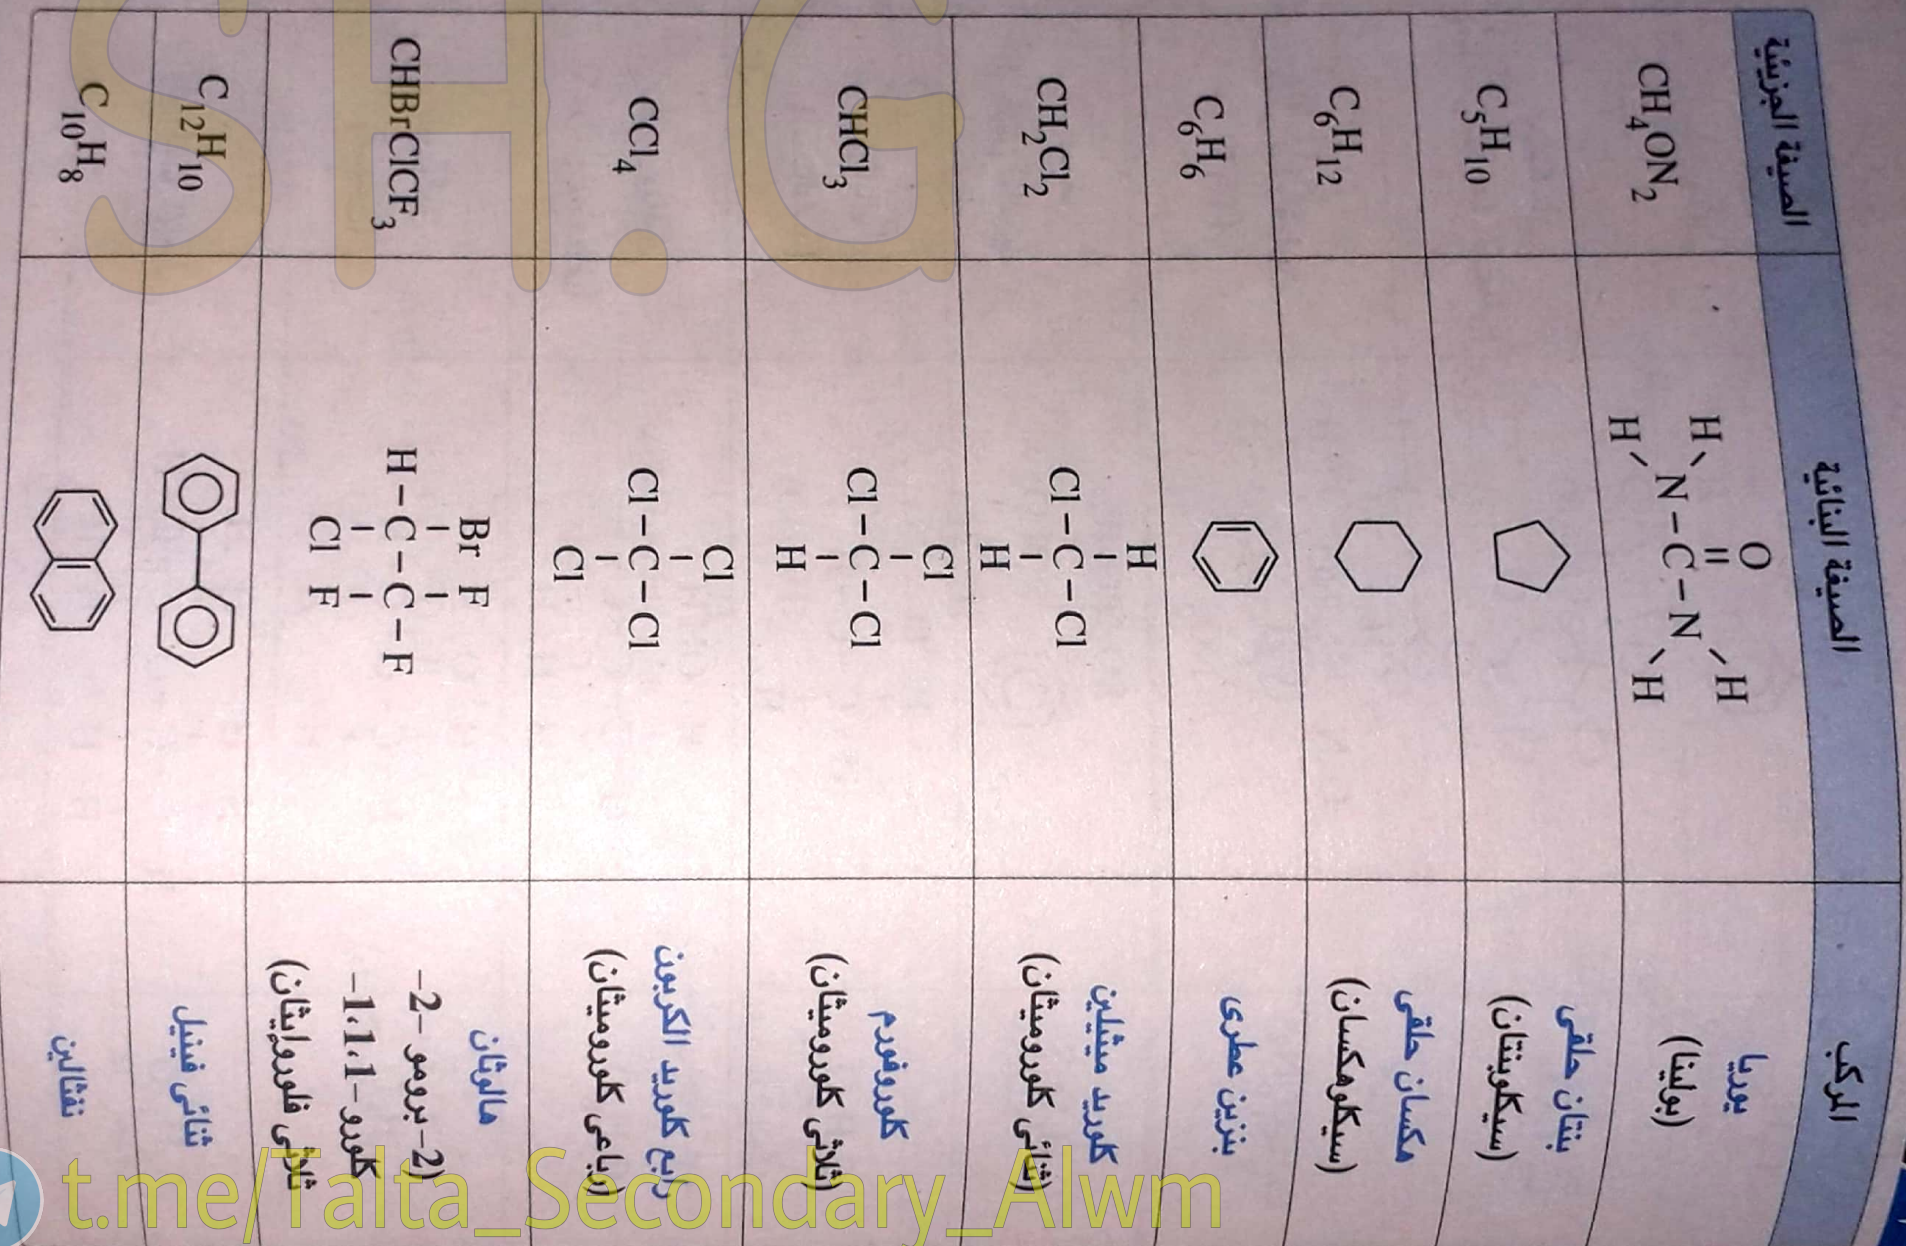 المركب الصيغة البنائية الصيغة الجزيئية
يوريا
(بولينا)
O
H H
N – C – N
H H
CH4ON2
بنتان حلقى
(سيكلوبنتان)
C5H10
هكسان حلقى
(سيكلوهكسان)
C6H12
بنزين عطرى
C6H6
كلوريد ميثيلين
(ثنائى كلوروميثان)
H
Cl – C – Cl
H
CH2Cl2
كلوروفورم
(ثلاثى كلوروميثان)
Cl
Cl – C – Cl
H
CHCl3
رابع كلوريد الكربون
(رباعى كلوروميثان)
Cl
Cl – C – Cl
Cl
CCl4
هالوثان
(2-برومو -2-
كلورو -1،1،1-
ثلاثى فلوروإيثان)
Br F
H – C – C – F
Cl F
CHBrClCF3
ثنائى فينيل
C12H10
نفثالين
C10H8
SH.G
t.me/Talta_Secondary_Alwm